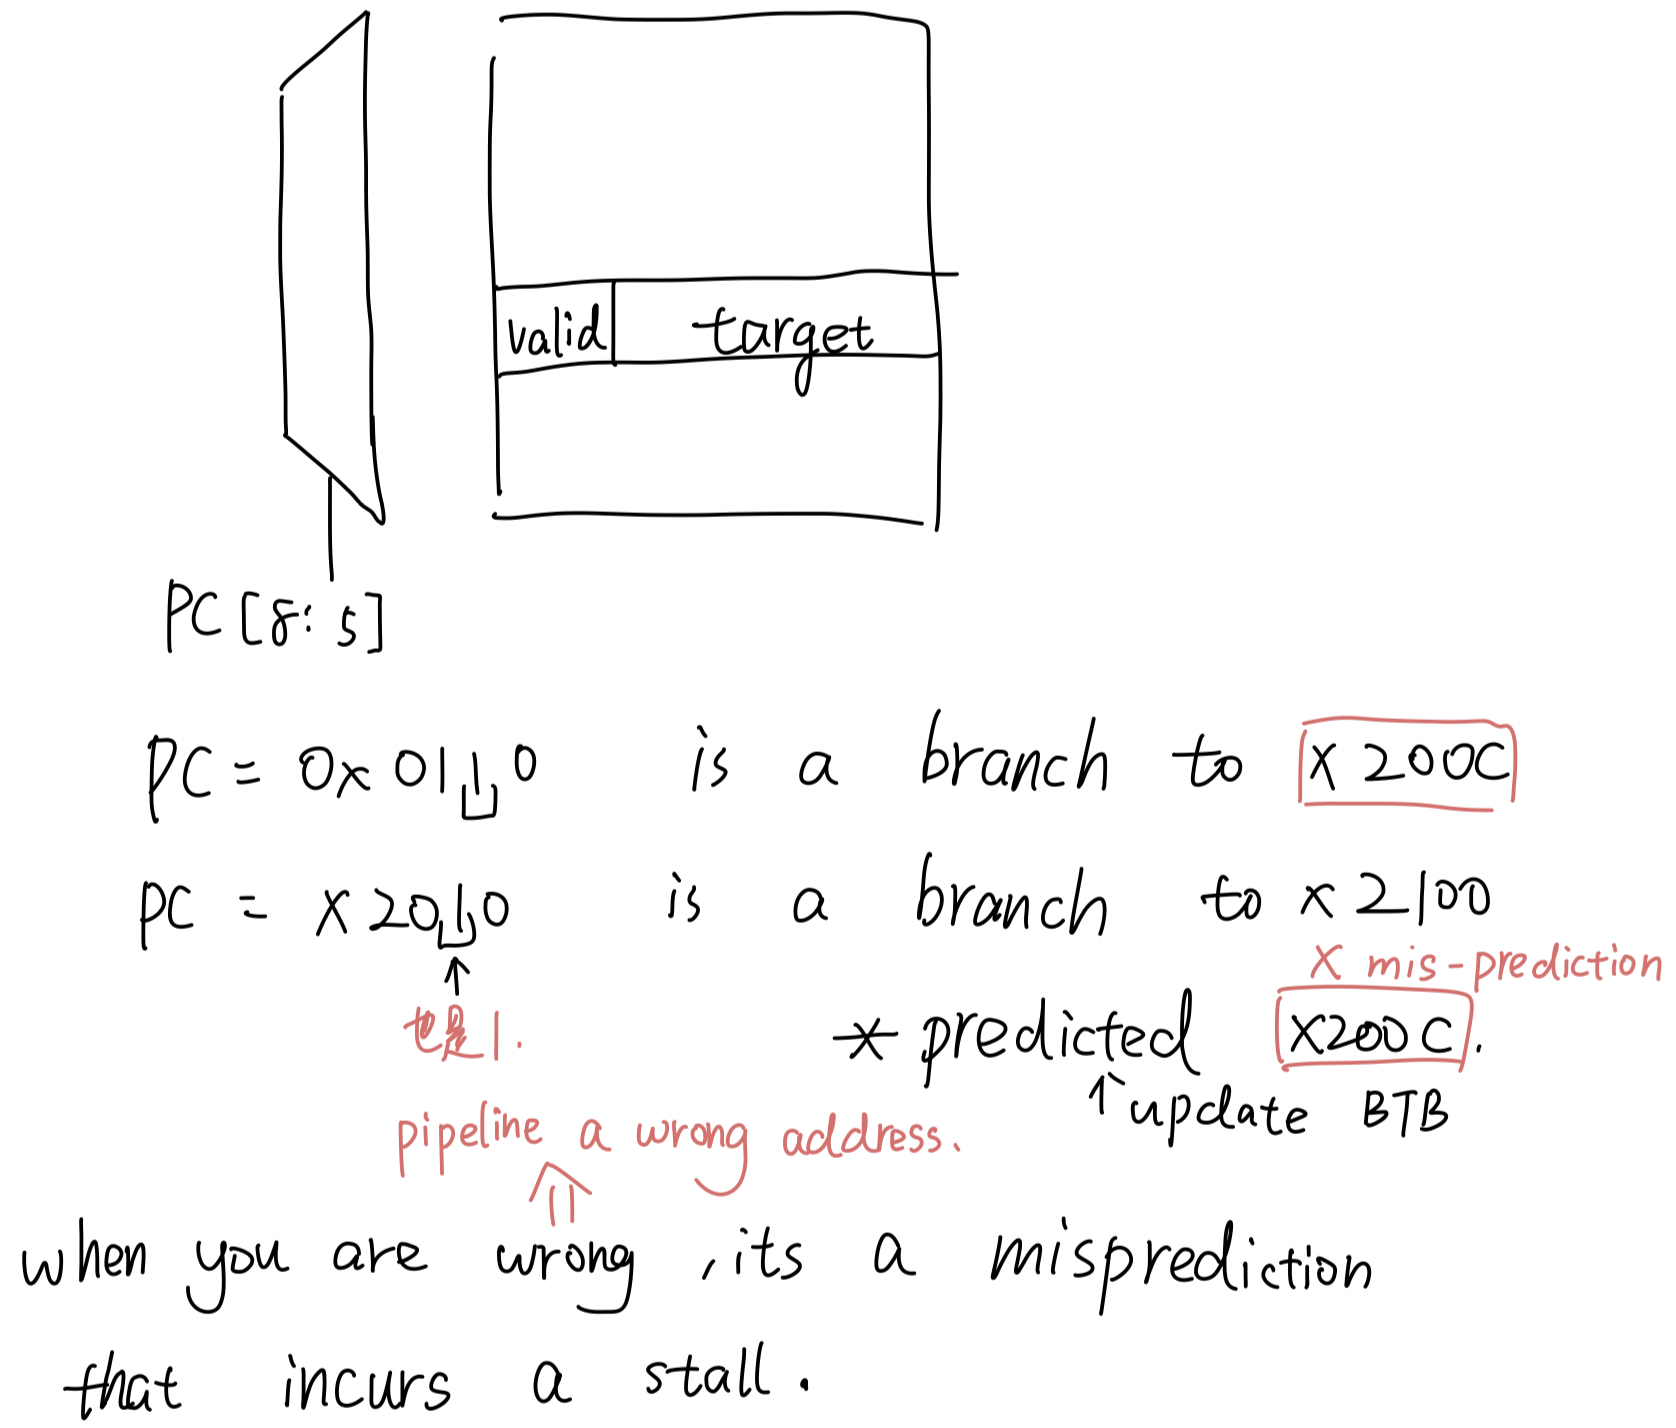 valid target
PC[8:5]
PC = 0x0110 is a branch to x200C
PC = x2010 is a branch to x2100
x mis-prediction
也是1.
* predicted x200C.
↑ update BTB
pipeline a wrong address.
when you are wrong, its a misprediction
that incurs a stall.